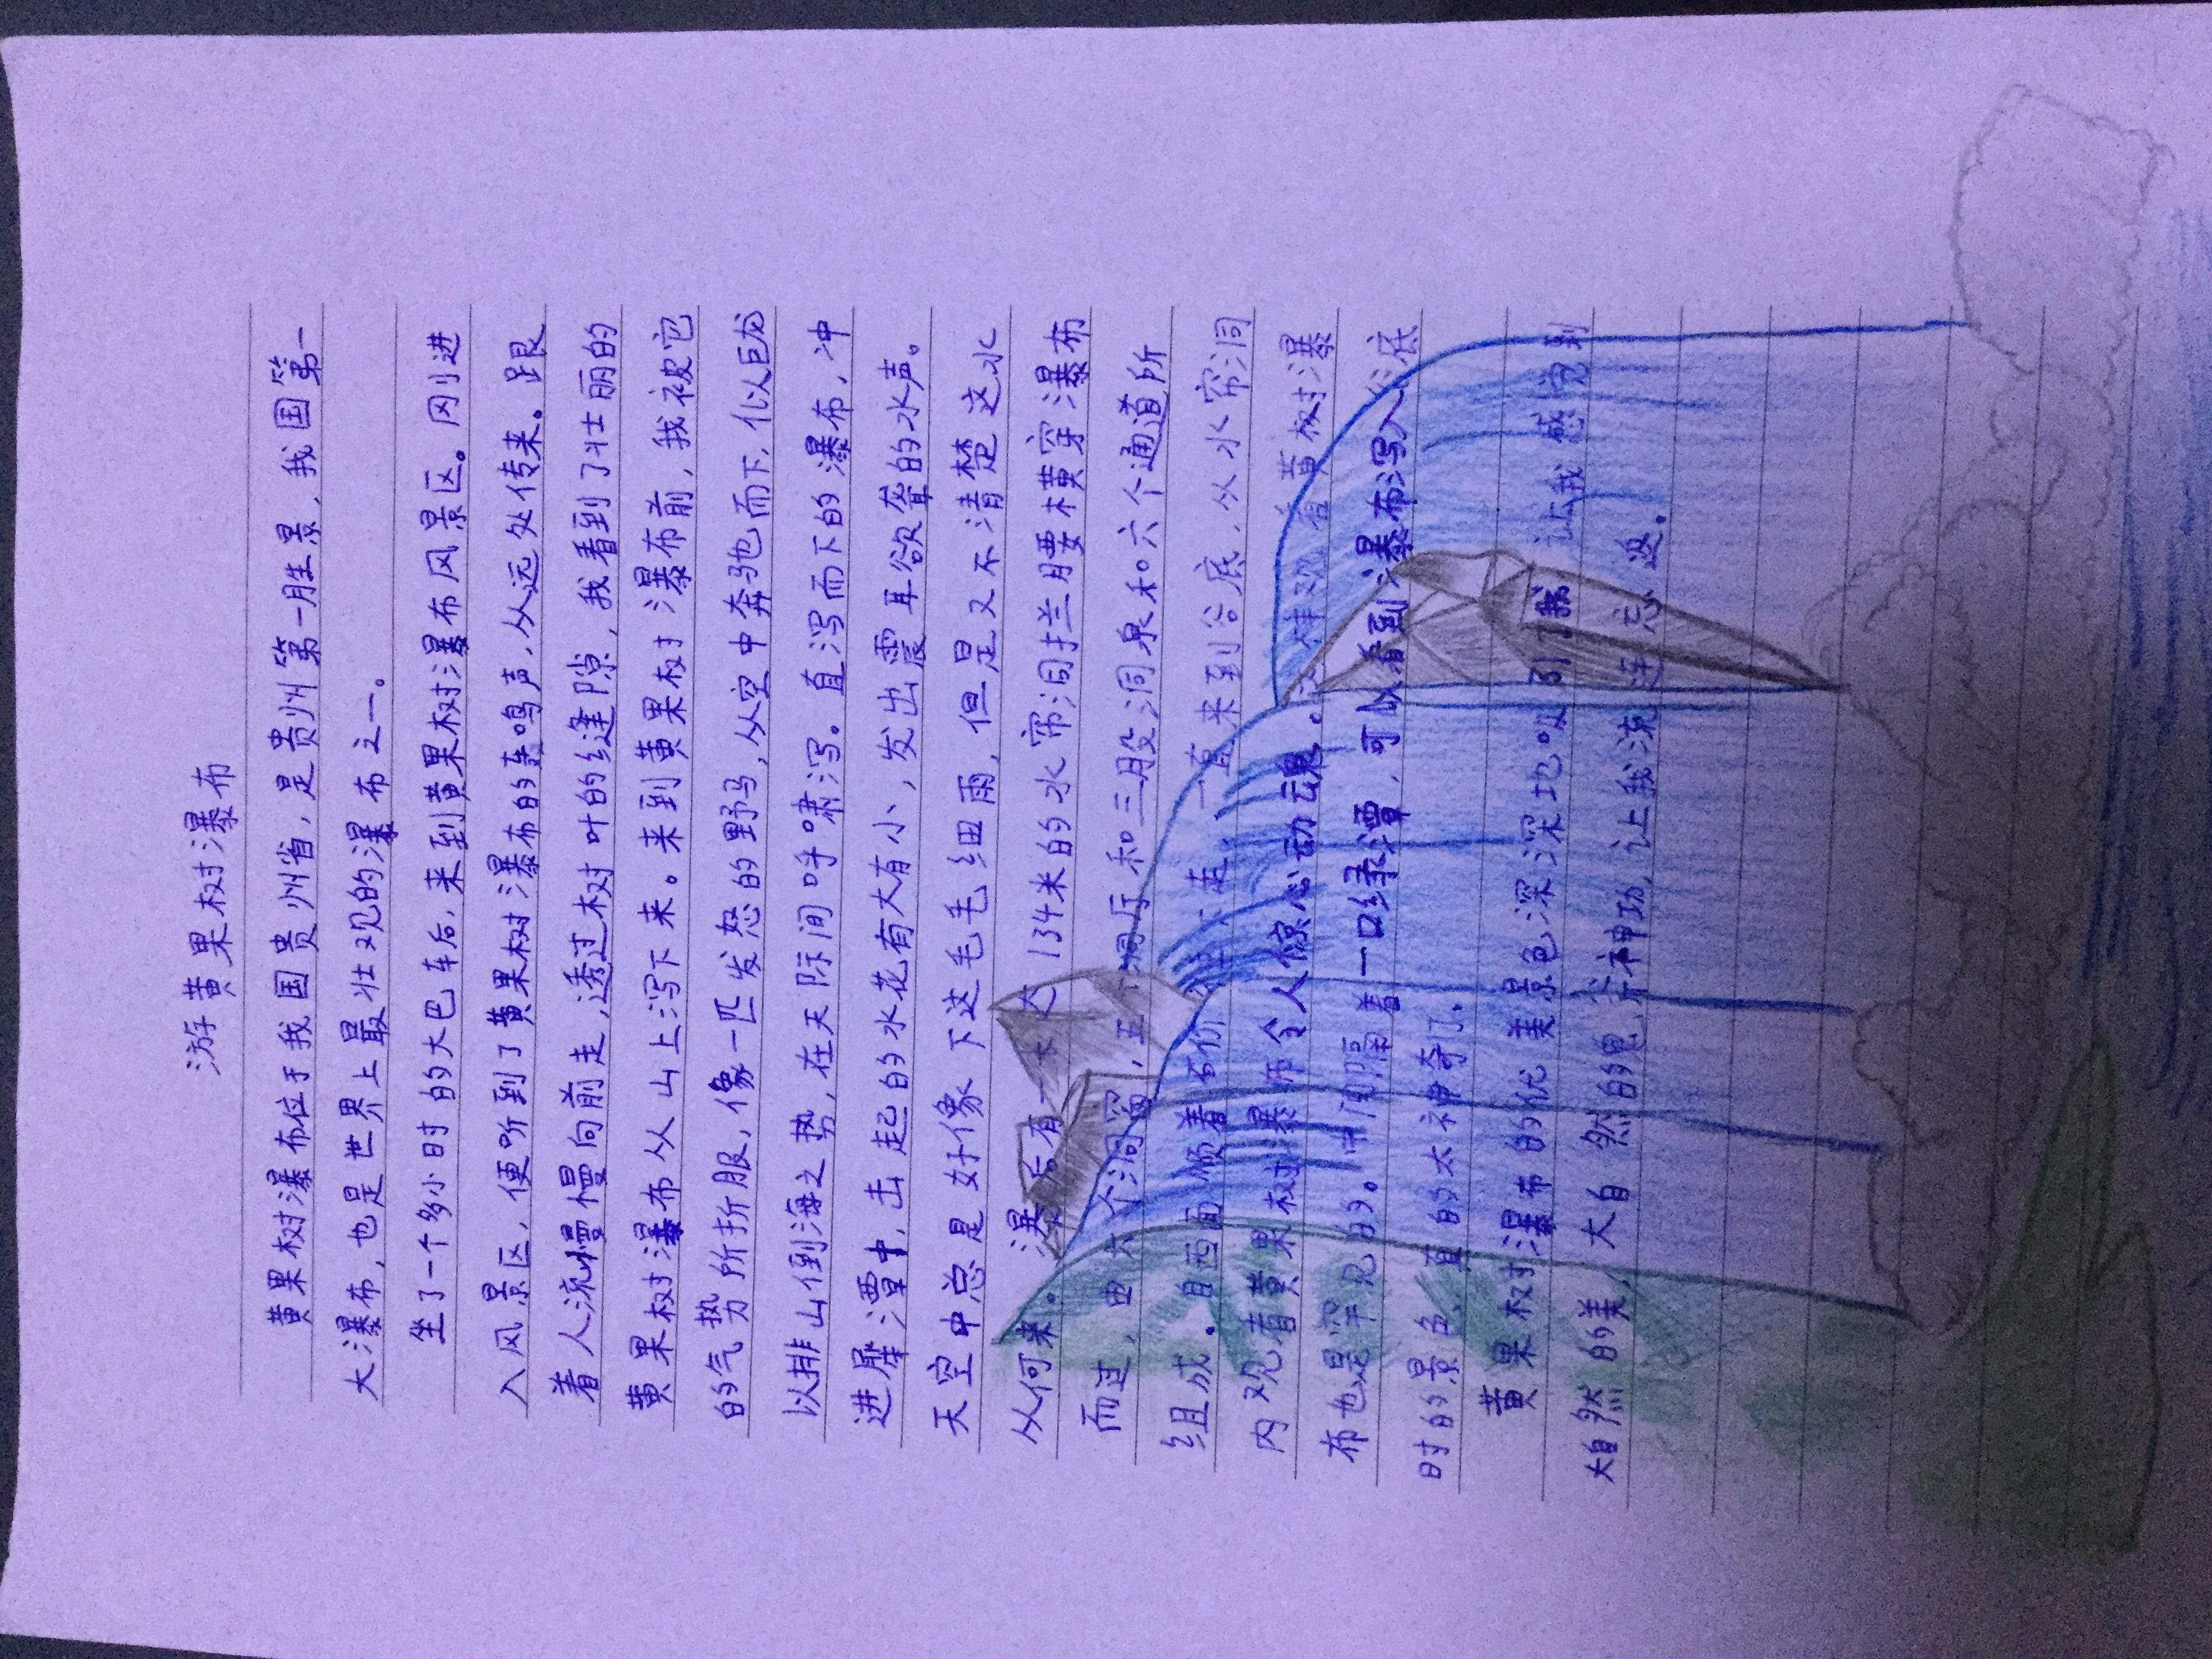 游黄果树瀑布
黄果树瀑布位于我国贵州省，是贵州第一胜景，我国第一
大瀑布，也是世界上最壮观的瀑布之一。
坐了一个多小时的大巴车后，来到黄果树瀑布风景区。刚进
入风景区，便听到了黄果树瀑布的轰鸣声，从远处传来。跟
着人流慢慢向前走，透过树叶的缝隙，我看到了壮丽的
黄果树瀑布从山上泻下来。来到黄果树瀑布前，我被它
的气势所折服，像一匹发怒的野马，从空中奔驰而下，似巨龙
以排山倒海之势，在天际间呼啸泻。直泻而下的瀑布，冲
进犀潭中，击起的水花有大有小，发出震耳欲聋的水声。
天空中总是好像下这毛毛细雨，但是又不清楚这水
从何来。瀑后有一长达134米的水帘洞拦腰横穿瀑布
而过，由六个洞窗，五个洞厅和三股洞泉和六个通道所
组成。自西面顺着 一直来到谷底，从水帘洞
内观着黄果树瀑布令人惊心动魂。这样观看黄果树瀑
布也是罕见的。中间隔着一口绿潭，可以看到瀑布泻入谷底
时的景色，真的太神奇了。
黄果树瀑布的优美景色深深地吸引了我，让我感觉到
大自然的美，大自然的鬼斧神功，让我流连忘返。